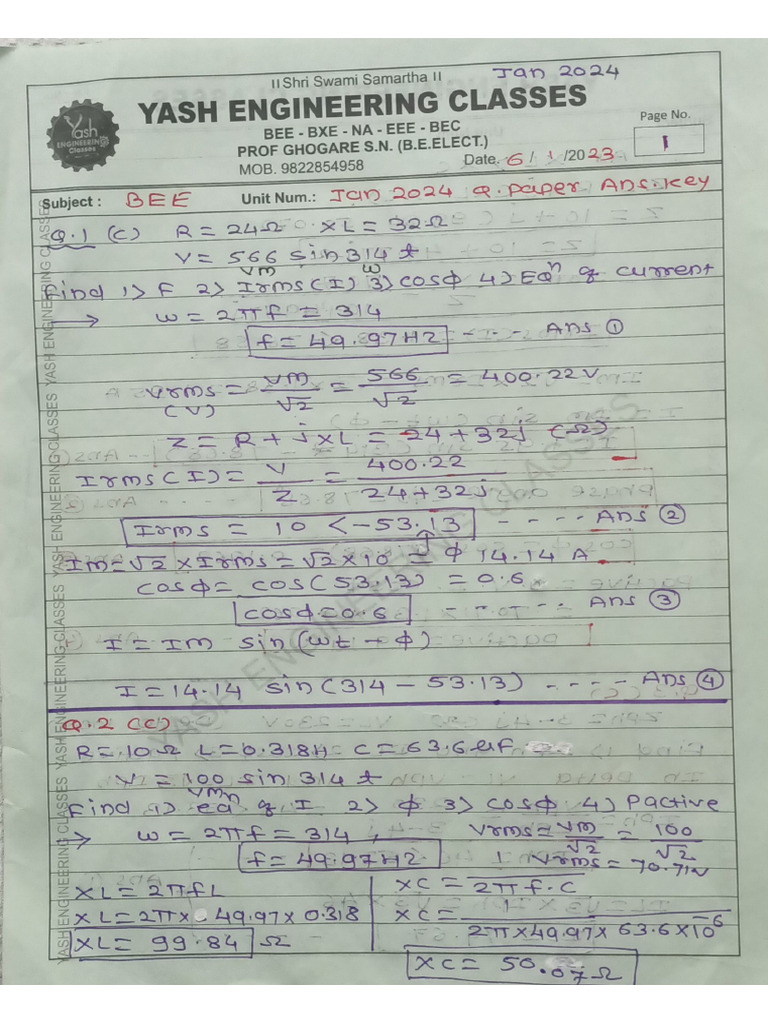 Jan 2024
II Shri Swami Samartha II
YASH ENGINEERING CLASSES
BEE - BXE - NA - EEE - BEC
PROF GHOGARE S.N. (B.E.ELECT.)
MOB. 9822854958
Yash
ENGINEERING
Classes
Page No.
1
Date. 6 / 1 /2023
Subject : BEE Unit Num.: Jan 2024 Q. Paper Ans. Key
Q.1 (C) R = 24Ω XL = 32Ω
V = 566 sin 314 t
Vm w
Find 1) F 2) Irms (I) 3) cosϕ 4) Eqn of current
→ w = 2πf = 314
f = 49.97Hz ---- Ans ①
Vrms = Vm/√2 = 566/√2 = 400.22V
(V)
Z = R + jXL = 24 + 32j (Ω)
Irms (I) = V/Z = 400.22/24+32j
Irms = 10 < -53.13 ---- Ans ②
Im = √2 × Irms = √2 × 10 = ϕ 14.14 A
cosϕ = cos(53.13) = 0.6
cosϕ = 0.6 ---- Ans ③
I = Im sin (wt - ϕ)
I = 14.14 sin (314 - 53.13) ---- Ans ④
Q.2 (C)
R = 10Ω L = 0.318H C = 63.6 uF
V = 100 sin 314 t
Vm
Find 1) eqn of I 2) ϕ 3) cosϕ 4) Pactive
→ w = 2πf = 314 , Vrms = Vm/√2 = 100/√2
f = 49.97Hz Vrms = 70.71V
XL = 2πfL
XL = 2π × 49.97 × 0.318
XL = 99.84 Ω
XC = 1/2πf.C
XC = 1/2π×49.97×63.6×10^-6
XC = 50.07Ω
YASH ENGINEERING CLASSES YASH ENGINEERING CLASSES YASH ENGINEERING CLASSES YASH ENGINEERING CLASSES
YASH ENGINEERING CLASSES